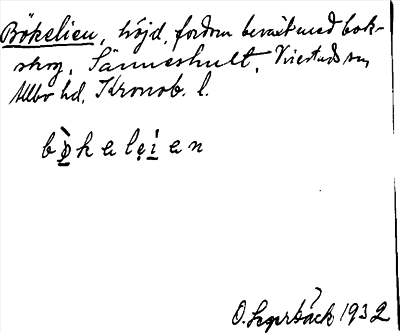 Bökelien, höjd, fordom bevuxt med bok-
skog, Sänneshult, Virestads sn,
Allbo hd, Kronob. l.
bökeleien
O. 1932